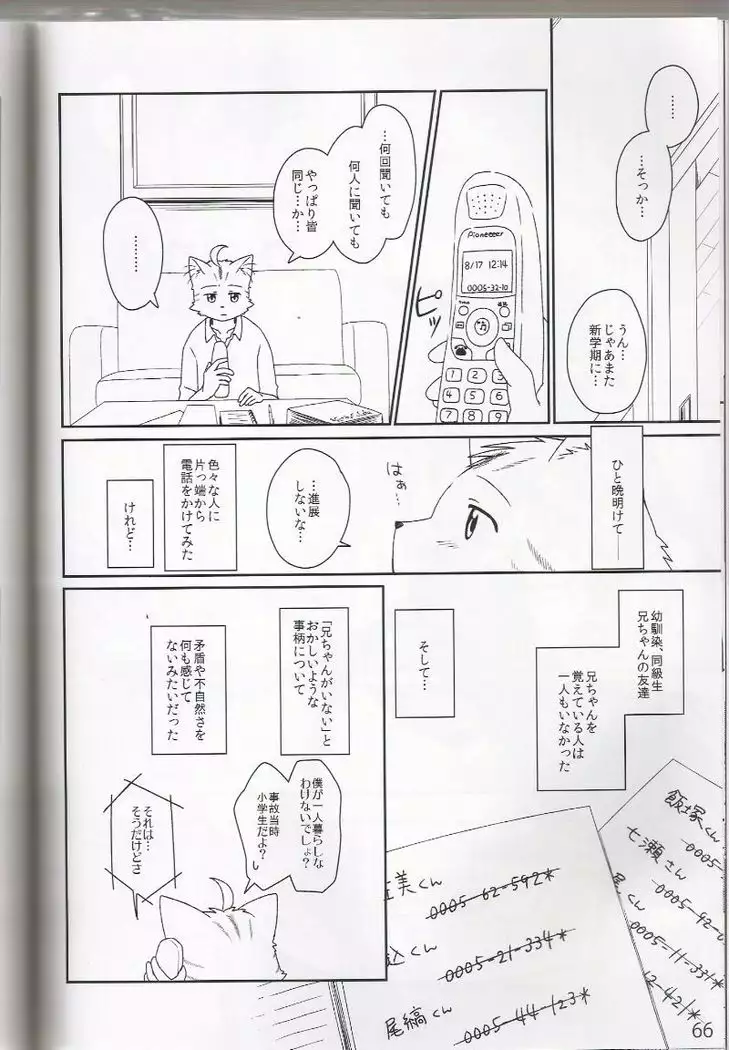 ……
…そっか…
うん…
じゃあまた
新学期に…
Pioneeeer
8/17 12:14
0005-32-10
1 2 3
4 5 6
7 8 9
ピッ
…何回聞いても
何人に聞いても
やっぱり皆
同じ…か…
………
ひと晩明けて──
はぁ…
…進展
しないな…
色々な人に
片っ端から
電話をかけてみた
けれど…
幼馴染、同級生
兄ちゃんの友達
兄ちゃんを
覚えている人は
一人もいなかった
そして…
飯塚くん
0005-
七瀬さん
0005-92-0
くん
0005-11-331*
12-421*
美くん
0005-62-592*
込くん
0005-21-334*
尾縞くん
0005-44-123*
「兄ちゃんがいない」と
おかしいような
事柄について
矛盾や不自然さを
何も感じて
ないみたいだった
僕が一人暮らしな
わけないでしょ?
事故当時
小学生だよ?
それは…
そうだけどさ
66